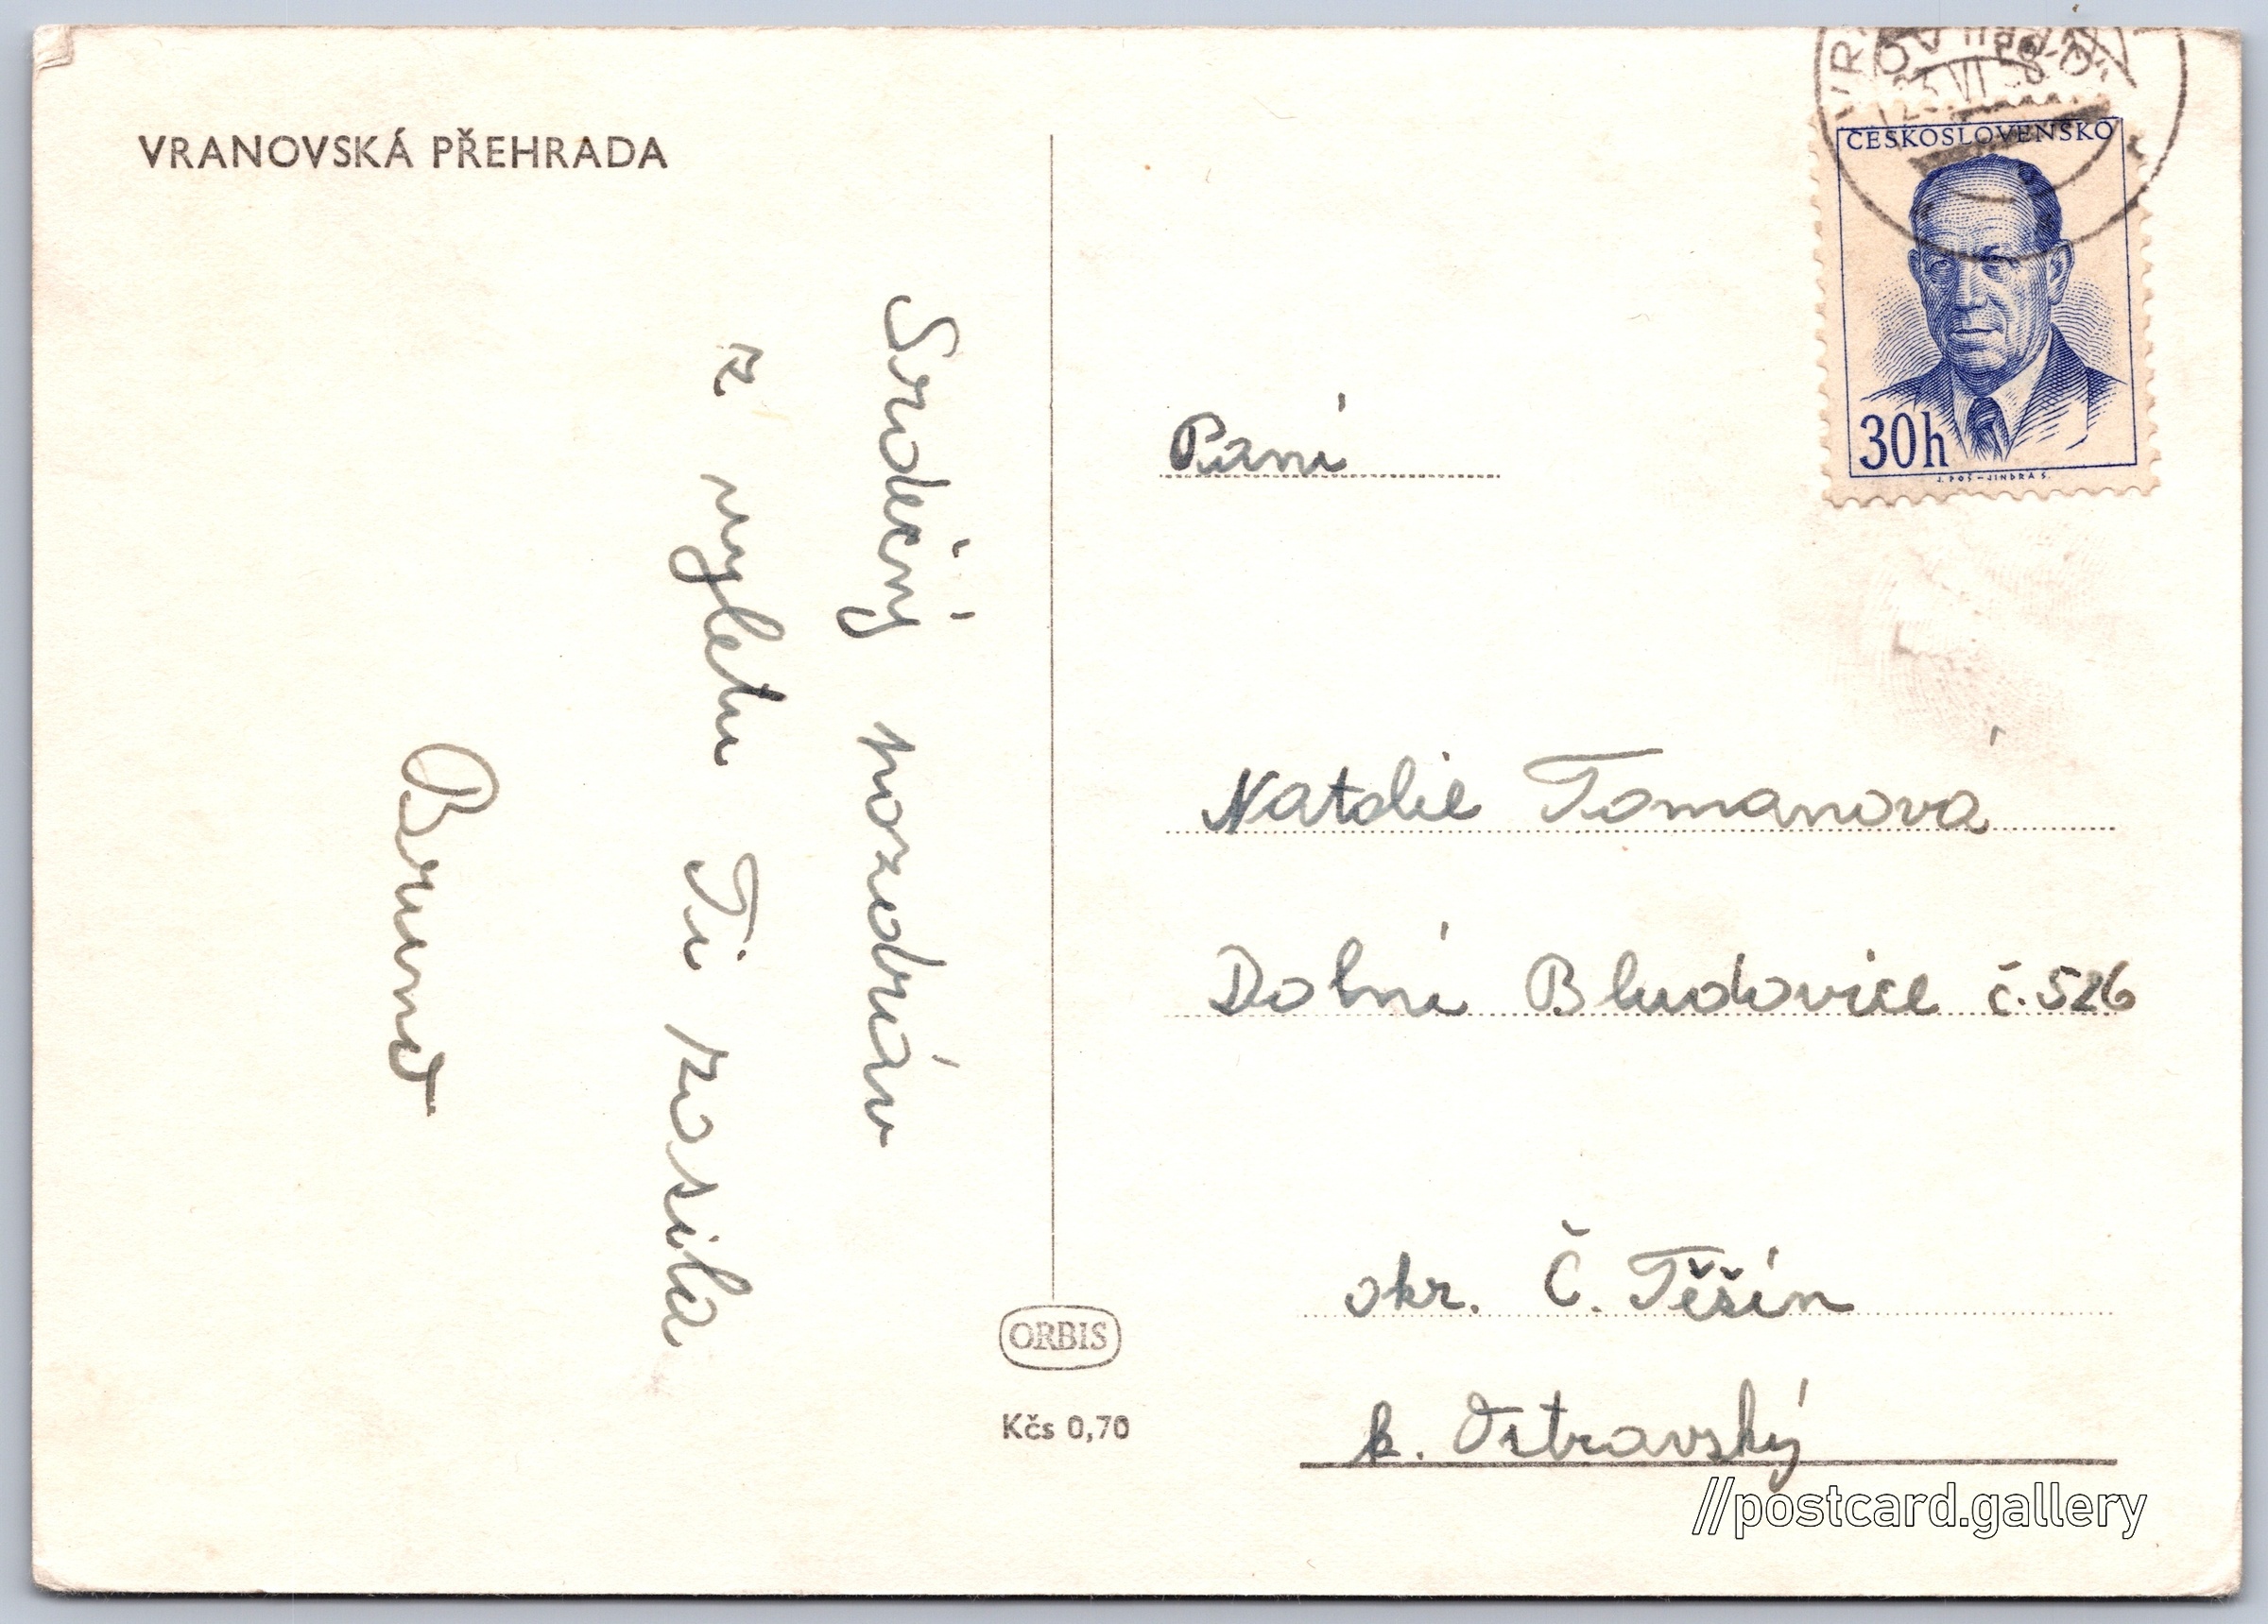 VRANOVSKÁ PŘEHRADA
Srdečný pozdrav
z výletu Ti posílá
ORBIS
Kčs 0,70
ČESKOSLOVENSKO
30h
J. POŠ - JINDRA S.
Paní
Natalie Tomanová
Dolní Bludovice č. 526
okr. Č. Těšín
k. Ostravský
//postcard.gallery